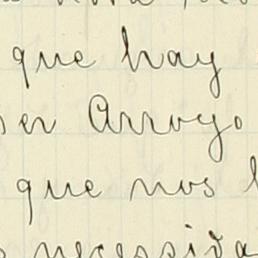 que hay
en Arroyo
que nos
necesida